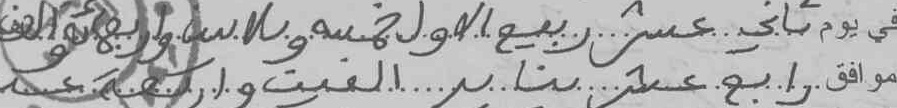 في يوم ثاني عشر ربيع الاول خمسه وثلاثين واربعمئة والف
موافق رابع عشر يناير الفين واربعة عشر